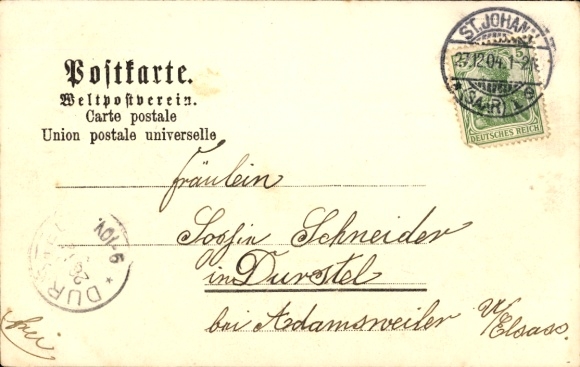 Postkarte.
Weltpostverein.
Carte postale
Union postale universelle
ST. JOHANN
27.12.04. 1-2N
* (SAAR) 1 e
DEUTSCHES REICH
Fräulein
Soffin Schneider
in Durstel
bei Adamsweiler U/Elsass.
DURSTEL
9-10V.
frei